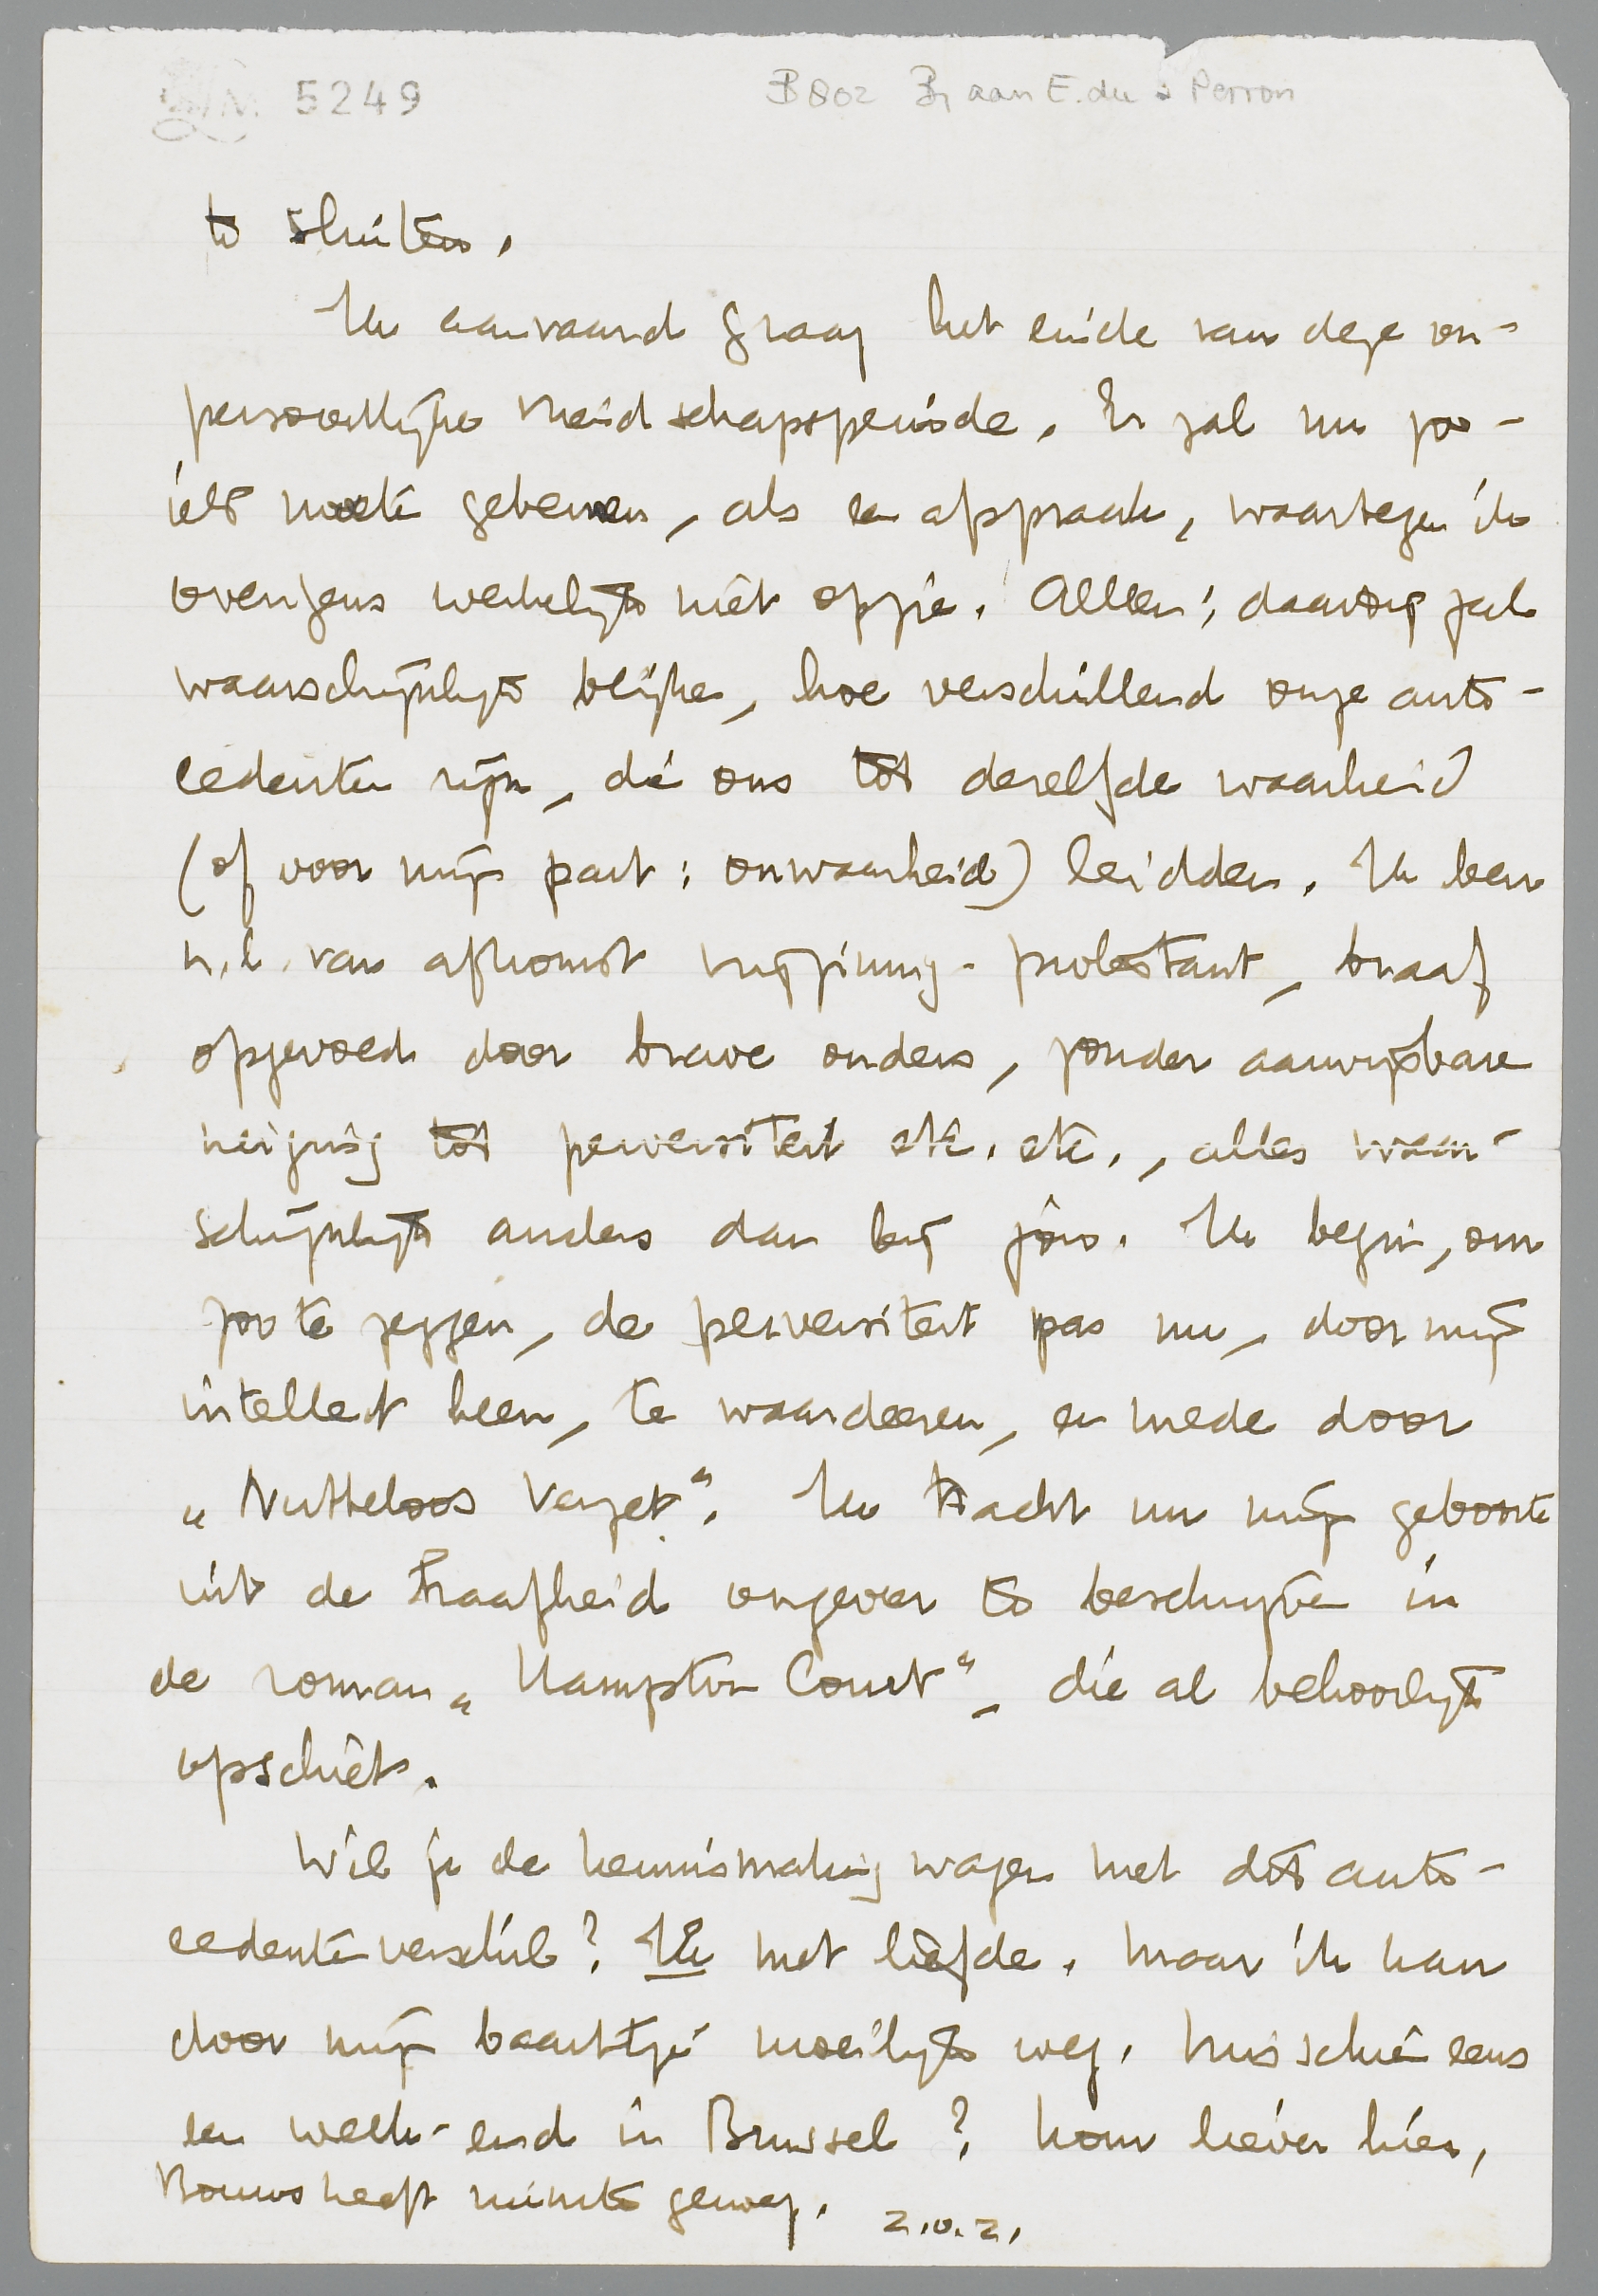 LM. 5249
B802 Br aan E. du Perron
te sluiten.
Ik aanvaard graag het einde van deze on-
persoonlijke vriendschapsperiode. Er zal nu zoo-
iets moeten gebeuren, als een afspraak, waartegen ik
overigens werkelijk niet opzie. Alleen: daarop zal
waarschijnlijk blijken, hoe verschillend onze ante-
cedenten zijn, die ons tot dezelfde waarheid
(of voor mijn part: onwaarheid) leidden. Ik ben
n.l. van afkomst vrijzinnig-protestant, braaf
opgevoed door brave ouders, zonder aanwijsbare
neiging tot perversiteit etc. etc., alles waar-
schijnlijk anders dan bij jou. Ik begin, om
zoo te zeggen, de perversiteit pas nu, door mijn
intellect heen, te waardeeren, en mede door
„Nutteloos Verzet". Ik tracht nu mijn geboorte
uit de braafheid ongeveer te beschrijven in
de roman „Hampton Court", die al behoorlijk
opschiet.
Wil je de kennismaking wagen met dit ante-
cedentenverschil? Ik met liefde. Maar ik kan
door mijn baantje moeilijk weg. Misschien eens
een week-end in Brussel? Kom liever hier,
Bouws heeft ruimte genoeg. z.o.z.